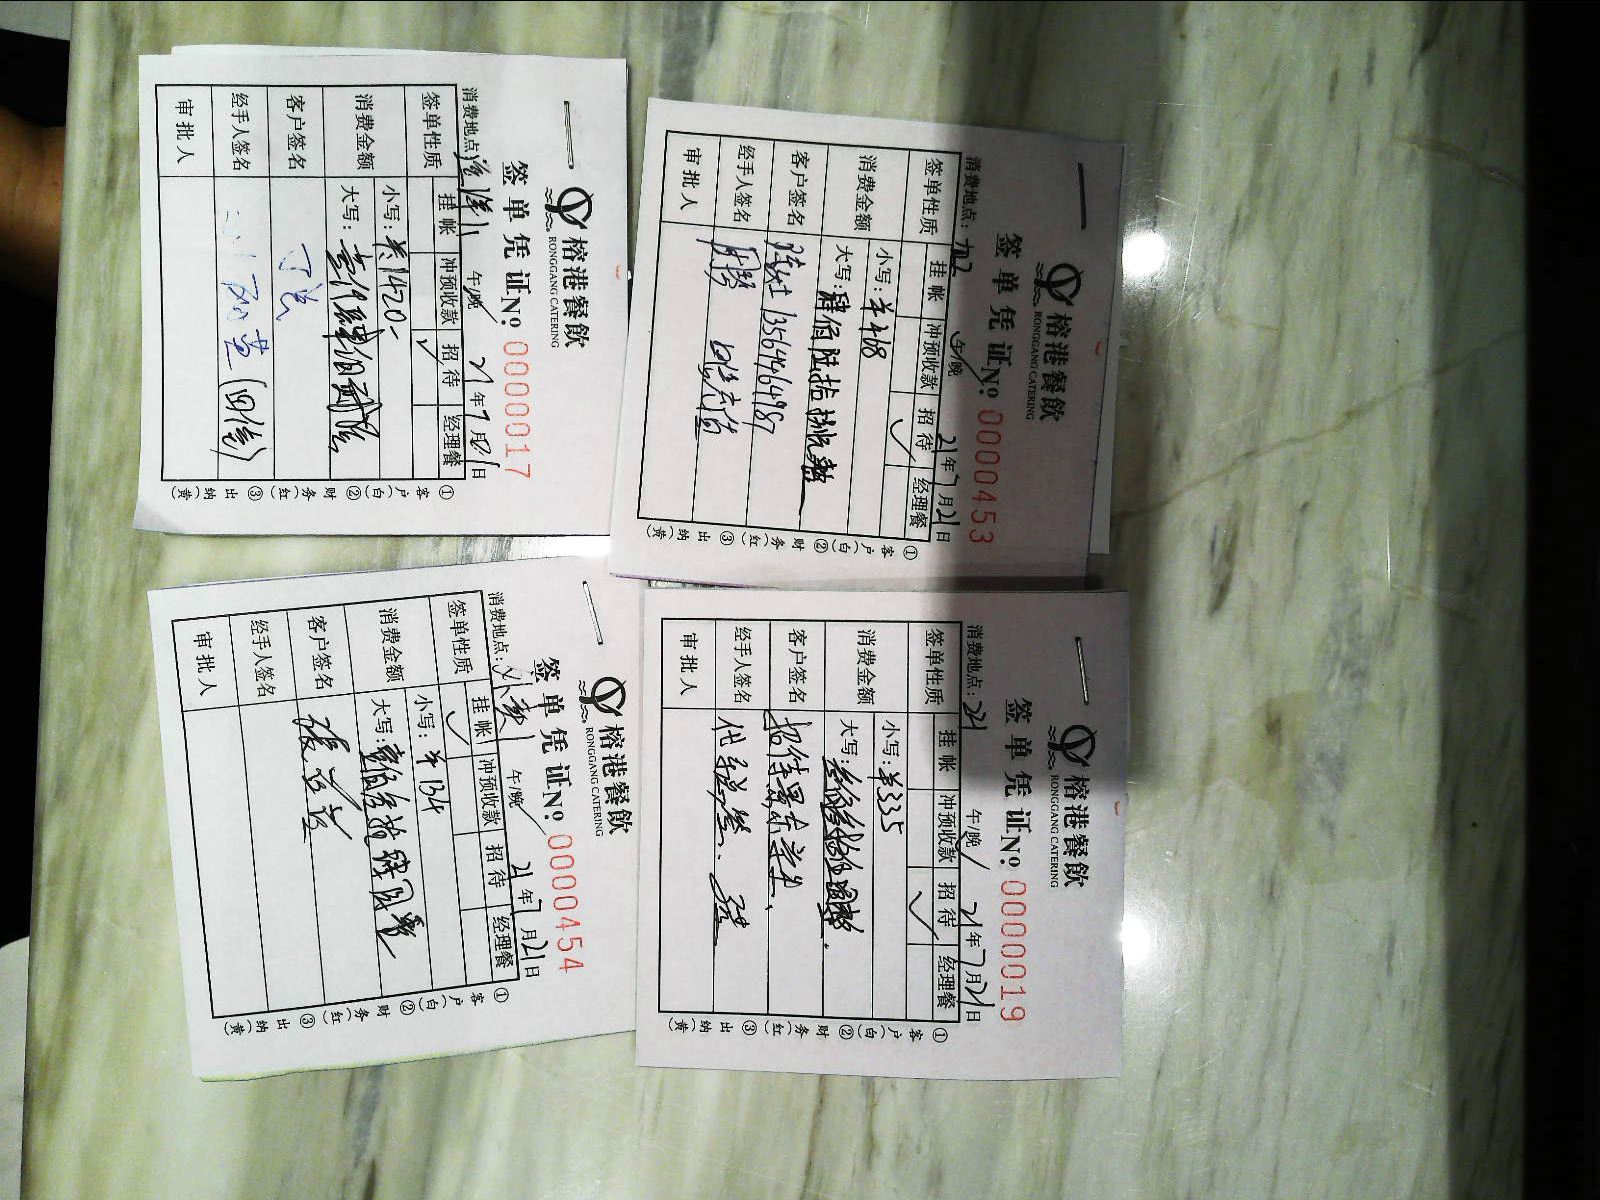 榕港餐飲
RONGGANG CATERING
签单凭证 No. 0000017
消费地点: 午/晚 21年7月21日
签单性质 挂帐 冲预收款 招待 ✓ 经理餐
消费金额 小写: ¥1420-
大写: 壹仟肆佰贰拾
客户签名
经手人签名
审批人
①客户(白)②财务(红)③出纳(黄)
榕港餐飲
RONGGANG CATERING
签单凭证 No. 0000453
消费地点: 午/晚 21年7月21日
签单性质 挂帐 冲预收款 招待 ✓ 经理餐
消费金额 小写: ¥468
大写: 肆佰陆拾捌元整
客户签名 13564464987
经手人签名
审批人
①客户(白)②财务(红)③出纳(黄)
榕港餐飲
RONGGANG CATERING
签单凭证 No. 0000454
消费地点: 午/晚 21年7月21日
签单性质 挂帐 ✓ 冲预收款 招待 经理餐
消费金额 小写: ¥134
大写: 壹佰叁拾肆圆整
客户签名
经手人签名
审批人
①客户(白)②财务(红)③出纳(黄)
榕港餐飲
RONGGANG CATERING
签单凭证 No. 0000019
消费地点: 221 午/晚 21年7月21日
签单性质 挂帐 冲预收款 招待 ✓ 经理餐
消费金额 小写: ¥335
大写: 叁佰叁拾伍圆整.
客户签名 招待
经手人签名 代
审批人
①客户(白)②财务(红)③出纳(黄)